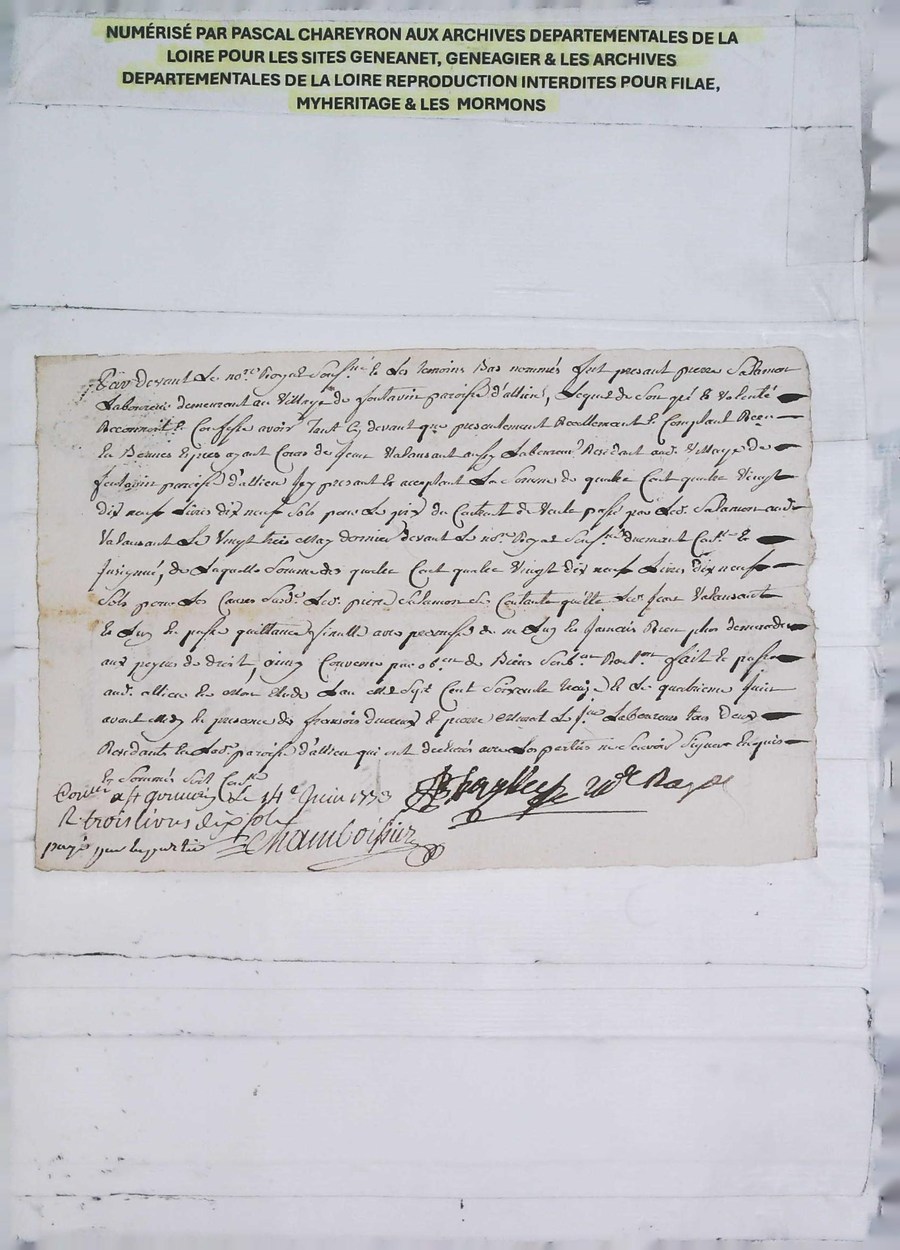 NUMÉRISÉ PAR PASCAL CHAREYRON AUX ARCHIVES DEPARTEMENTALES DE LA
LOIRE POUR LES SITES GENEANET, GENEAGIER & LES ARCHIVES
DEPARTEMENTALES DE LA LOIRE REPRODUCTION INTERDITES POUR FILAE,
MYHERITAGE & LES MORMONS
Par devant le no.re Royal Sous.né & les temoins Bas nommés fut presant pierre Salamon
Laboureur demeurant au Village de fontavin paroisse d'allieu, Lequel de Son gré & Volonté
Reconnoit & Confesse avoir tant Cy devant que presentement Reellement & Comptant Receu
En Especes ayant Cours de Jean Valansant aussy Laboureur Residant aud. Village de
fontavin paroisse d'allieu Icy presant & acceptant La Somme de quatre Cent quatre Vingt
dix neuf Livres dix neuf Sols pour le prix du Contract de Vente passé par led. Salamon aud.
Valansant Le Vingt trois May dernier devant le no.re Royal Sous.né duement Cont.lé &
Insinué, de laquelle Somme de quatre Cent quatre Vingt dix neuf Livres dix neuf
Sols pour les Causes Susd. led. pierre Salamon Se Contante quitte led. Jean Valansant
& Luy En passe quittance finalle avec promesse de ne Luy En Jamais Rien plus demander
aux peynes de droit, ainsy Convenu par ob.on de Biens fait & passé
aud. allieu En notre Etude L'an Mil Sept Cent Soixante treize & le quatrieme Juin
avant Midy En presance de francois & pierre Laboureurs tous Deux
Residants En lad. paroisse d'allieu qui ont declarés avec Les parties ne Scavoir Signer Enquis
& Sommés Soit Cont.lé
Con.lé a St germain Le 14e Juin 1773
R. trois livres dix sols
payé par
No.re Royal